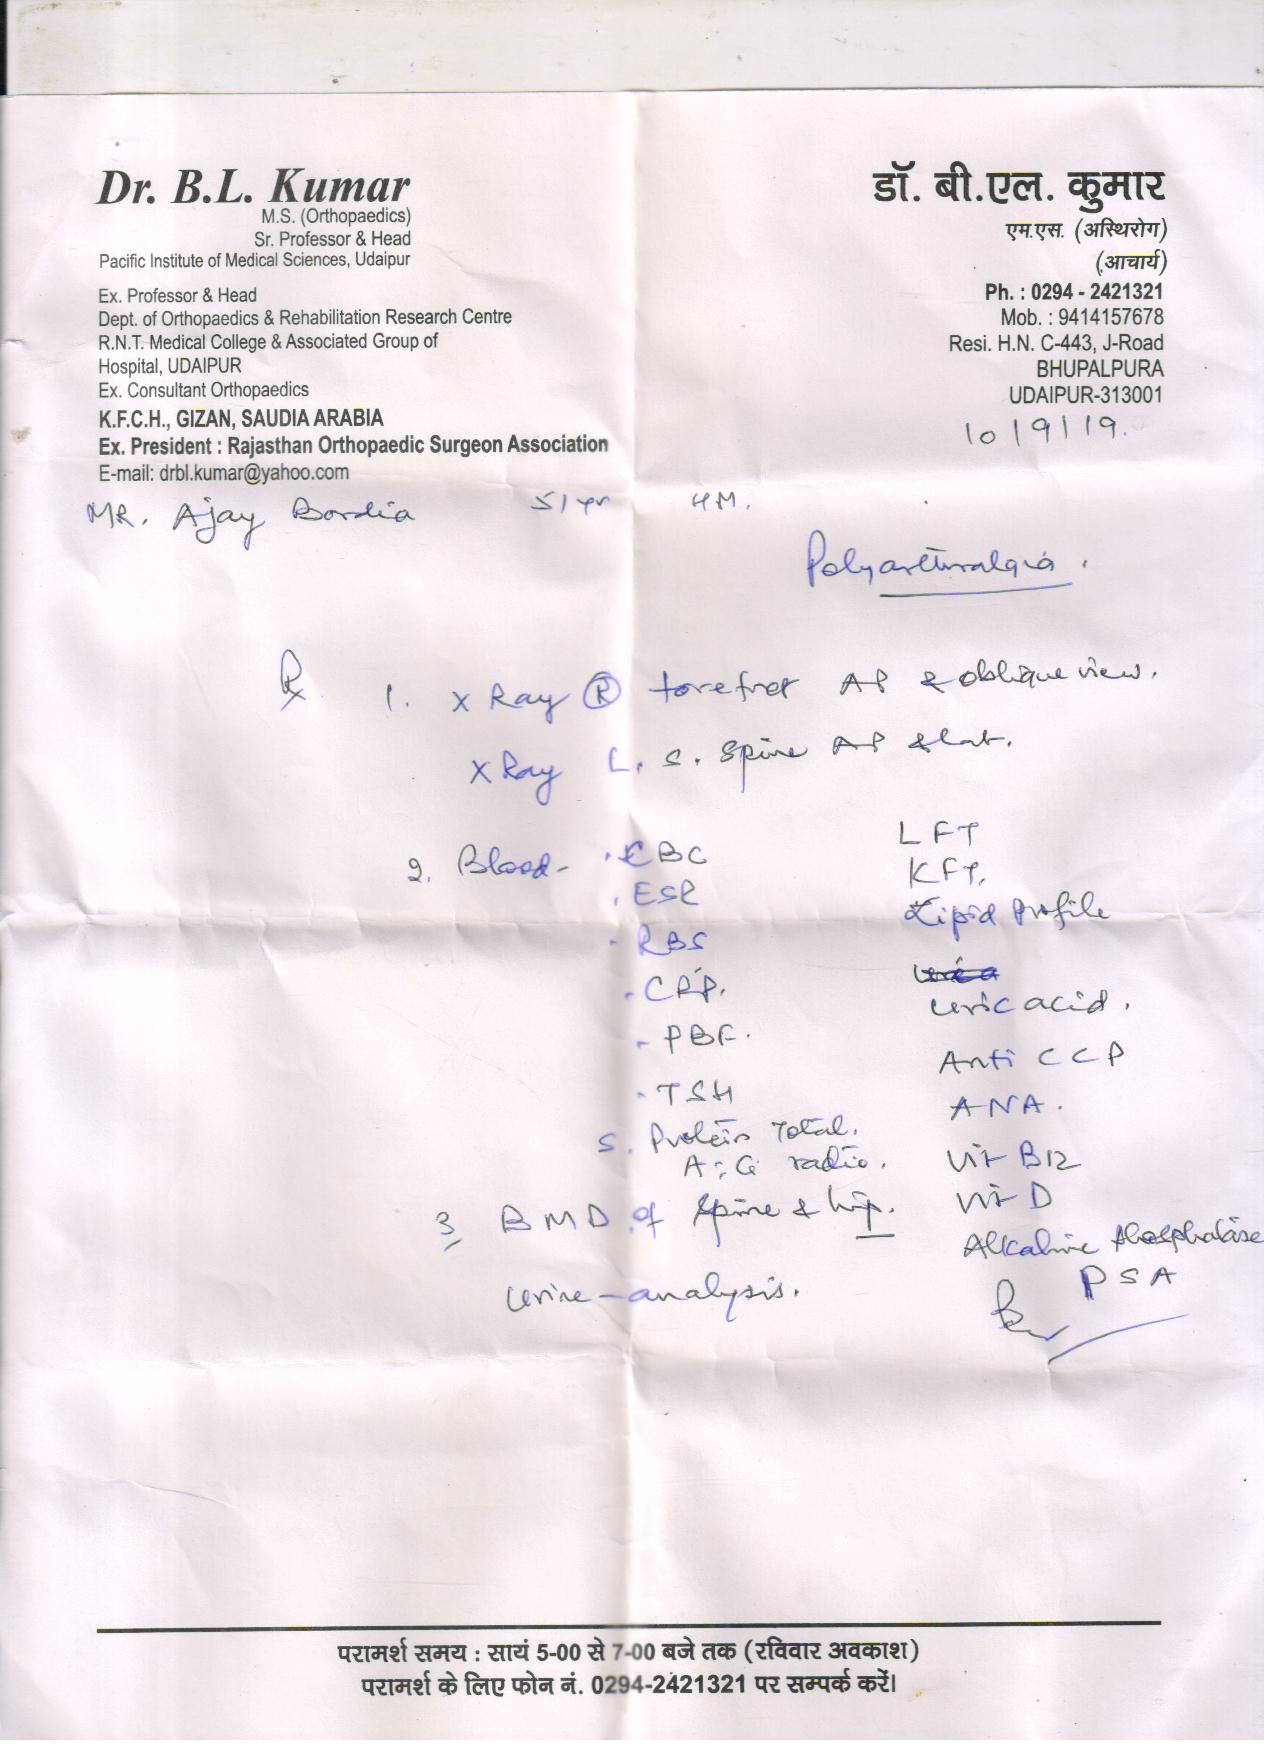 Dr. B.L. Kumar
M.S. (Orthopaedics)
Sr. Professor & Head
Pacific Institute of Medical Sciences, Udaipur
Ex. Professor & Head
Dept. of Orthopaedics & Rehabilitation Research Centre
R.N.T. Medical College & Associated Group of
Hospital, UDAIPUR
Ex. Consultant Orthopaedics
K.F.C.H., GIZAN, SAUDIA ARABIA
Ex. President : Rajasthan Orthopaedic Surgeon Association
E-mail: drbl.kumar@yahoo.com
डॉ. बी.एल. कुमार
एम.एस. (अस्थिरोग)
(आचार्य)
Ph. : 0294 - 2421321
Mob. : 9414157678
Resi. H.N. C-443, J-Road
BHUPALPURA
UDAIPUR-313001
10/9/19.
MR. Ajay Bordia 51yr HM.
Polyarthralgia.
Rx 1. X Ray (R) forefoot AP & oblique view.
X Ray L. S. Spine AP & lat.
2. Blood - . CBC
. ESR
- RBS
- CRP.
- PBF.
- TSH
S. Protein Total.
A:G radio.
LFT
KFT.
Lipid Profile
Uric acid.
Anti CCP
ANA.
Vit B12
Vit D
Alkaline Phosphatase
PSA
3 BMD of Spine & hip.
Urine - analysis.
परामर्श समय : सायं 5-00 से 7-00 बजे तक (रविवार अवकाश)
परामर्श के लिए फोन नं. 0294-2421321 पर सम्पर्क करें।